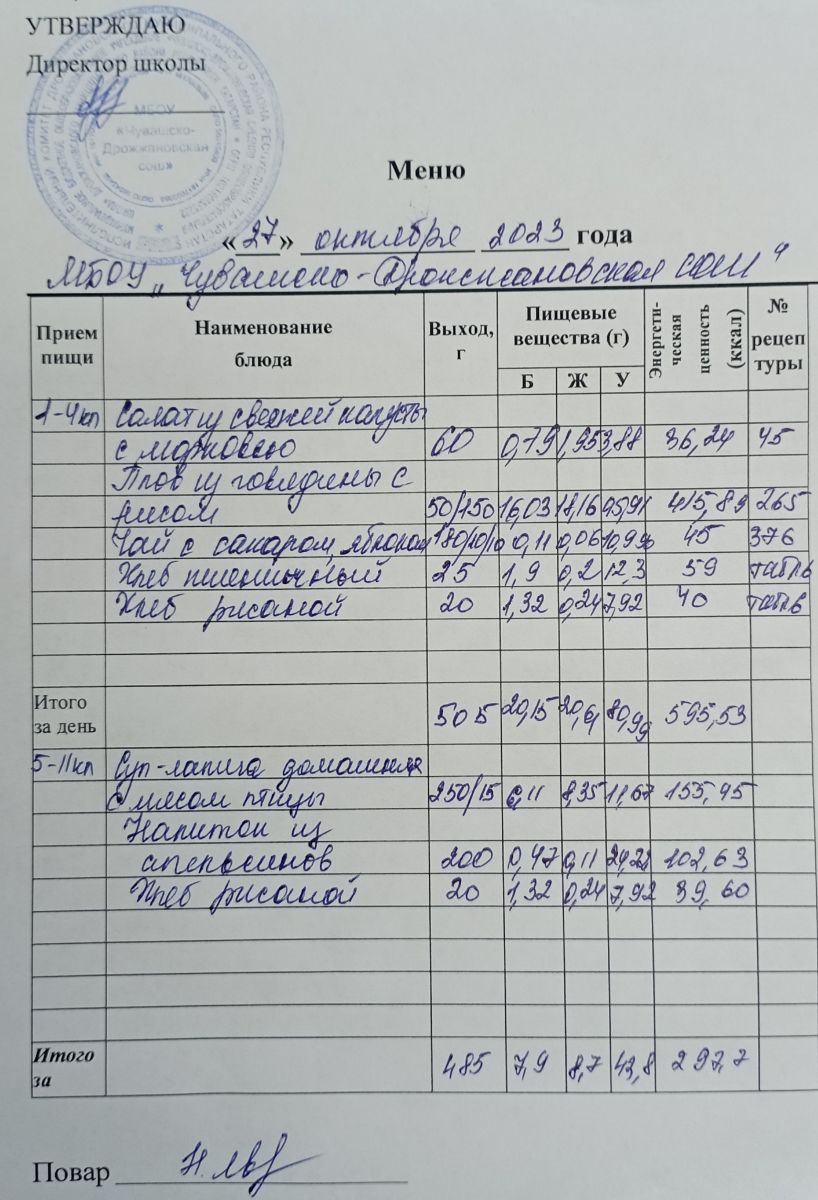 УТВЕРЖДАЮ
Директор школы
МБОУ
«Чувашско-
Дрожжановская
сош»
Меню
«27» октября 2023 года
МБОУ „Чувашско-Дрожжановская СОШ"
Прием пищи Наименование блюда Выход, г Пищевые вещества (г) Энергети-ческая ценность (ккал) № рецеп туры
Б Ж У
1-4 кл Салат из свежей капусты
с морковью 60 0,79 1,95 3,88 36,24 45
Плов из говядины с
рисом 50/150 16,03 18,16 45,91 415,89 265
Чай с сахаром, яблоком 180/10/10 0,11 0,06 10,99 45 376
Хлеб пшеничный 25 1,9 0,2 12,3 59 табль
Хлеб ржаной 20 1,32 0,24 7,92 40 табль
Итого за день 505 20,15 20,61 80,99 595,53
5-11 кл Суп-лапша домашняя
с мясом птицы 250/15 6,11 8,35 11,67 155,45
Напиток из
апельсинов 200 0,47 0,11 24,22 102,63
Хлеб ржаной 20 1,32 0,24 7,92 39,60
Итого за 485 7,9 8,7 43,8 297,7
Повар